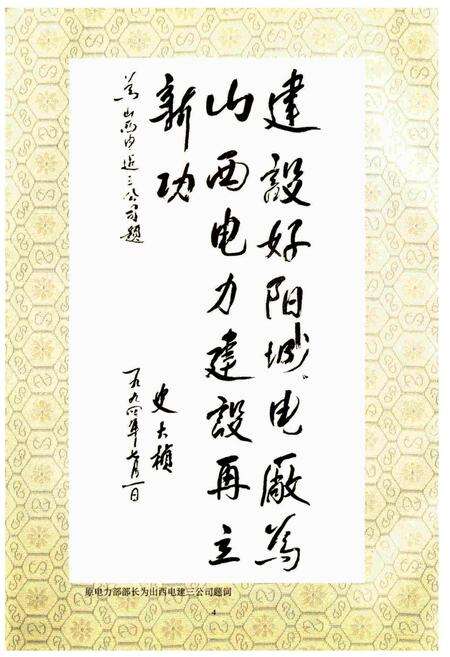 建設好阳城电廠為
山西电力建設再立
新功
為山西电建三公司題
史大桢
一九九四年七月一日
原电力部部长为山西电建三公司题词
4